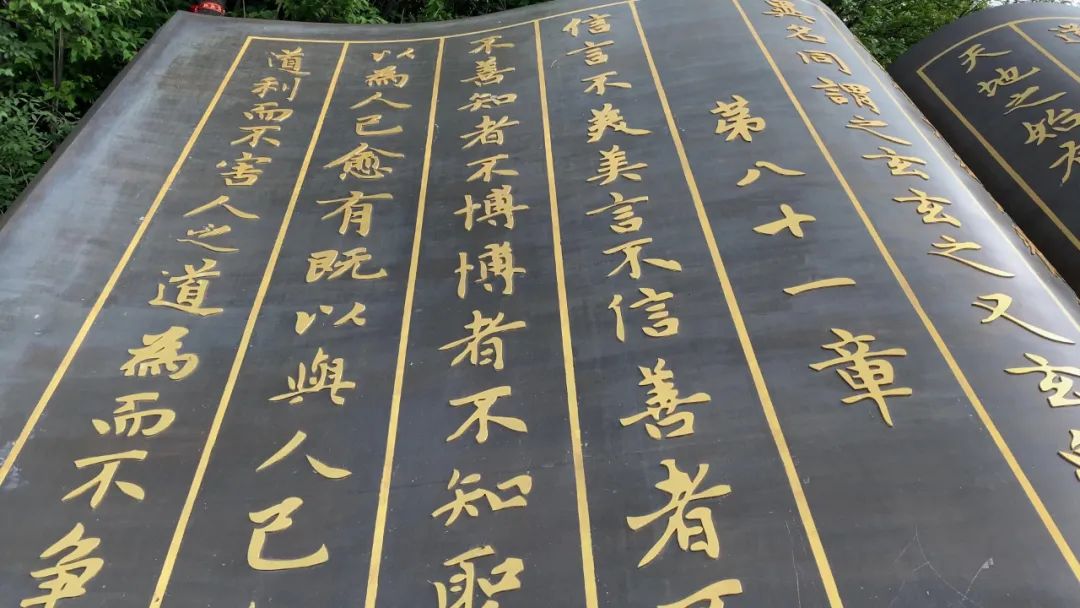 天地之始天
異名同謂之玄玄之又玄
第八十一章
信言不美美言不信善者不
不善知者不博博者不知聖
以為人己愈有既以與人己
道利而不害人之道為而不争